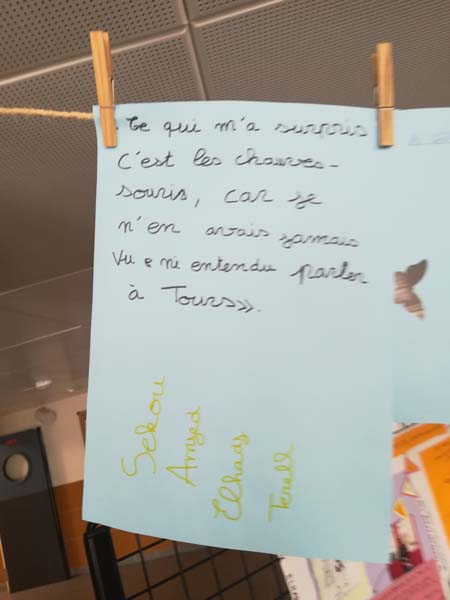 . Ce qui m'a surpris
C'est les chauves-
souris, car je
n'en avais jamais
vu e ni entendu parler
à Tours».
Sekou
Amjed
Elhadj
Terell